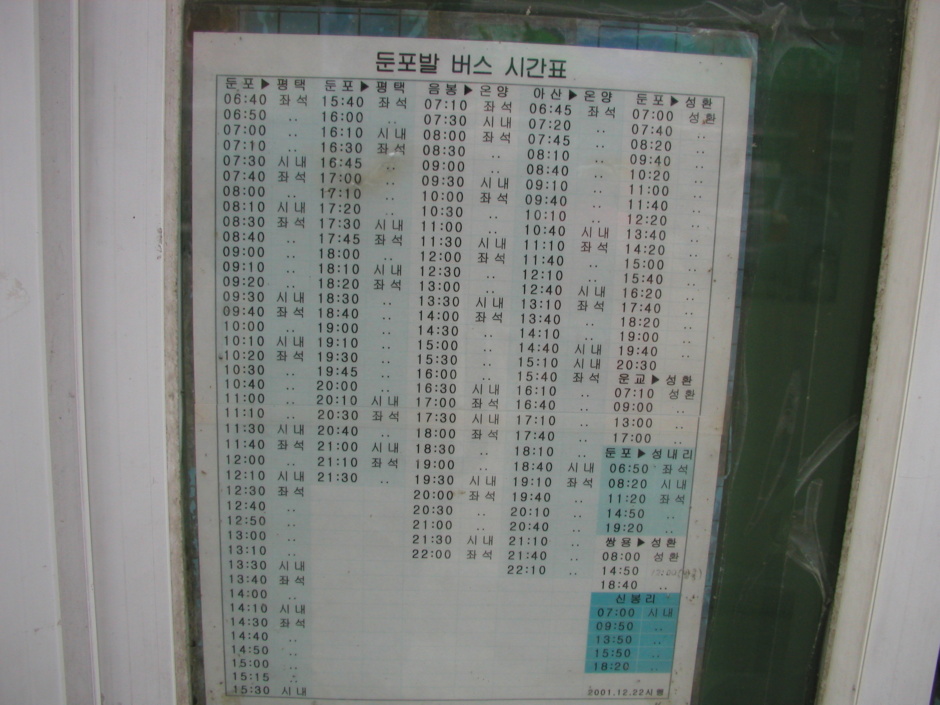 둔포발 버스 시간표
둔포▶평택
06:40 좌석
06:50 ..
07:00 ..
07:10 ..
07:30 시내
07:40 좌석
08:00 ..
08:10 시내
08:30 좌석
08:40 ..
09:00 ..
09:10 ..
09:20 ..
09:30 시내
09:40 좌석
10:00 ..
10:10 시내
10:20 좌석
10:30 ..
10:40 ..
11:00 ..
11:10 ..
11:30 시내
11:40 좌석
12:00 ..
12:10 시내
12:30 좌석
12:40 ..
12:50 ..
13:00 ..
13:10 ..
13:30 시내
13:40 좌석
14:00 ..
14:10 시내
14:30 좌석
14:40 ..
14:50 ..
15:00 ..
15:15 ..
15:30 시내
둔포▶평택
15:40 좌석
16:00 ..
16:10 시내
16:30 좌석
16:45 ..
17:00 ..
17:10 ..
17:20 ..
17:30 시내
17:45 좌석
18:00 ..
18:10 시내
18:20 좌석
18:30 ..
18:40 ..
19:00 ..
19:10 ..
19:30 ..
19:45 ..
20:00 ..
20:10 시내
20:30 좌석
20:40 ..
21:00 시내
21:10 좌석
21:30 ..
음봉▶온양
07:10 좌석
07:30 시내
08:00 좌석
08:30 ..
09:00 ..
09:30 시내
10:00 좌석
10:30 ..
11:00 ..
11:30 시내
12:00 좌석
12:30 ..
13:00 ..
13:30 시내
14:00 좌석
14:30 ..
15:00 ..
15:30 ..
16:00 ..
16:30 시내
17:00 좌석
17:30 시내
18:00 좌석
18:30 ..
19:00 ..
19:30 시내
20:00 좌석
20:30 ..
21:00 ..
21:30 시내
22:00 좌석
아산▶온양
06:45 좌석
07:20 ..
07:45 ..
08:10 ..
08:40 ..
09:10 ..
09:40 ..
10:10 ..
10:40 시내
11:10 좌석
11:40 ..
12:10 ..
12:40 시내
13:10 좌석
13:40 ..
14:10 ..
14:40 시내
15:10 시내
15:40 좌석
16:10 ..
16:40 ..
17:10 ..
17:40 ..
18:10 ..
18:40 시내
19:10 좌석
19:40 ..
20:10 ..
20:40 ..
21:10 ..
21:40 ..
22:10 ..
둔포▶성환
07:00 성환
07:40 ..
08:20 ..
09:40 ..
10:20 ..
11:00 ..
11:40 ..
12:20 ..
13:40 ..
14:20 ..
15:00 ..
15:40 ..
16:20 ..
17:40 ..
18:20 ..
19:00 ..
19:40 ..
20:30 ..
운교▶성환
07:10 성환
09:00 ..
13:00 ..
17:00 ..
둔포▶성내리
06:50 좌석
08:20 시내
11:20 좌석
14:50 ..
19:20 ..
쌍용▶성환
08:00 성환
14:50
18:40 ..
신봉리
07:00 시내
09:50 ..
13:50 ..
15:50 ..
18:20 ..
2001.12.22시행